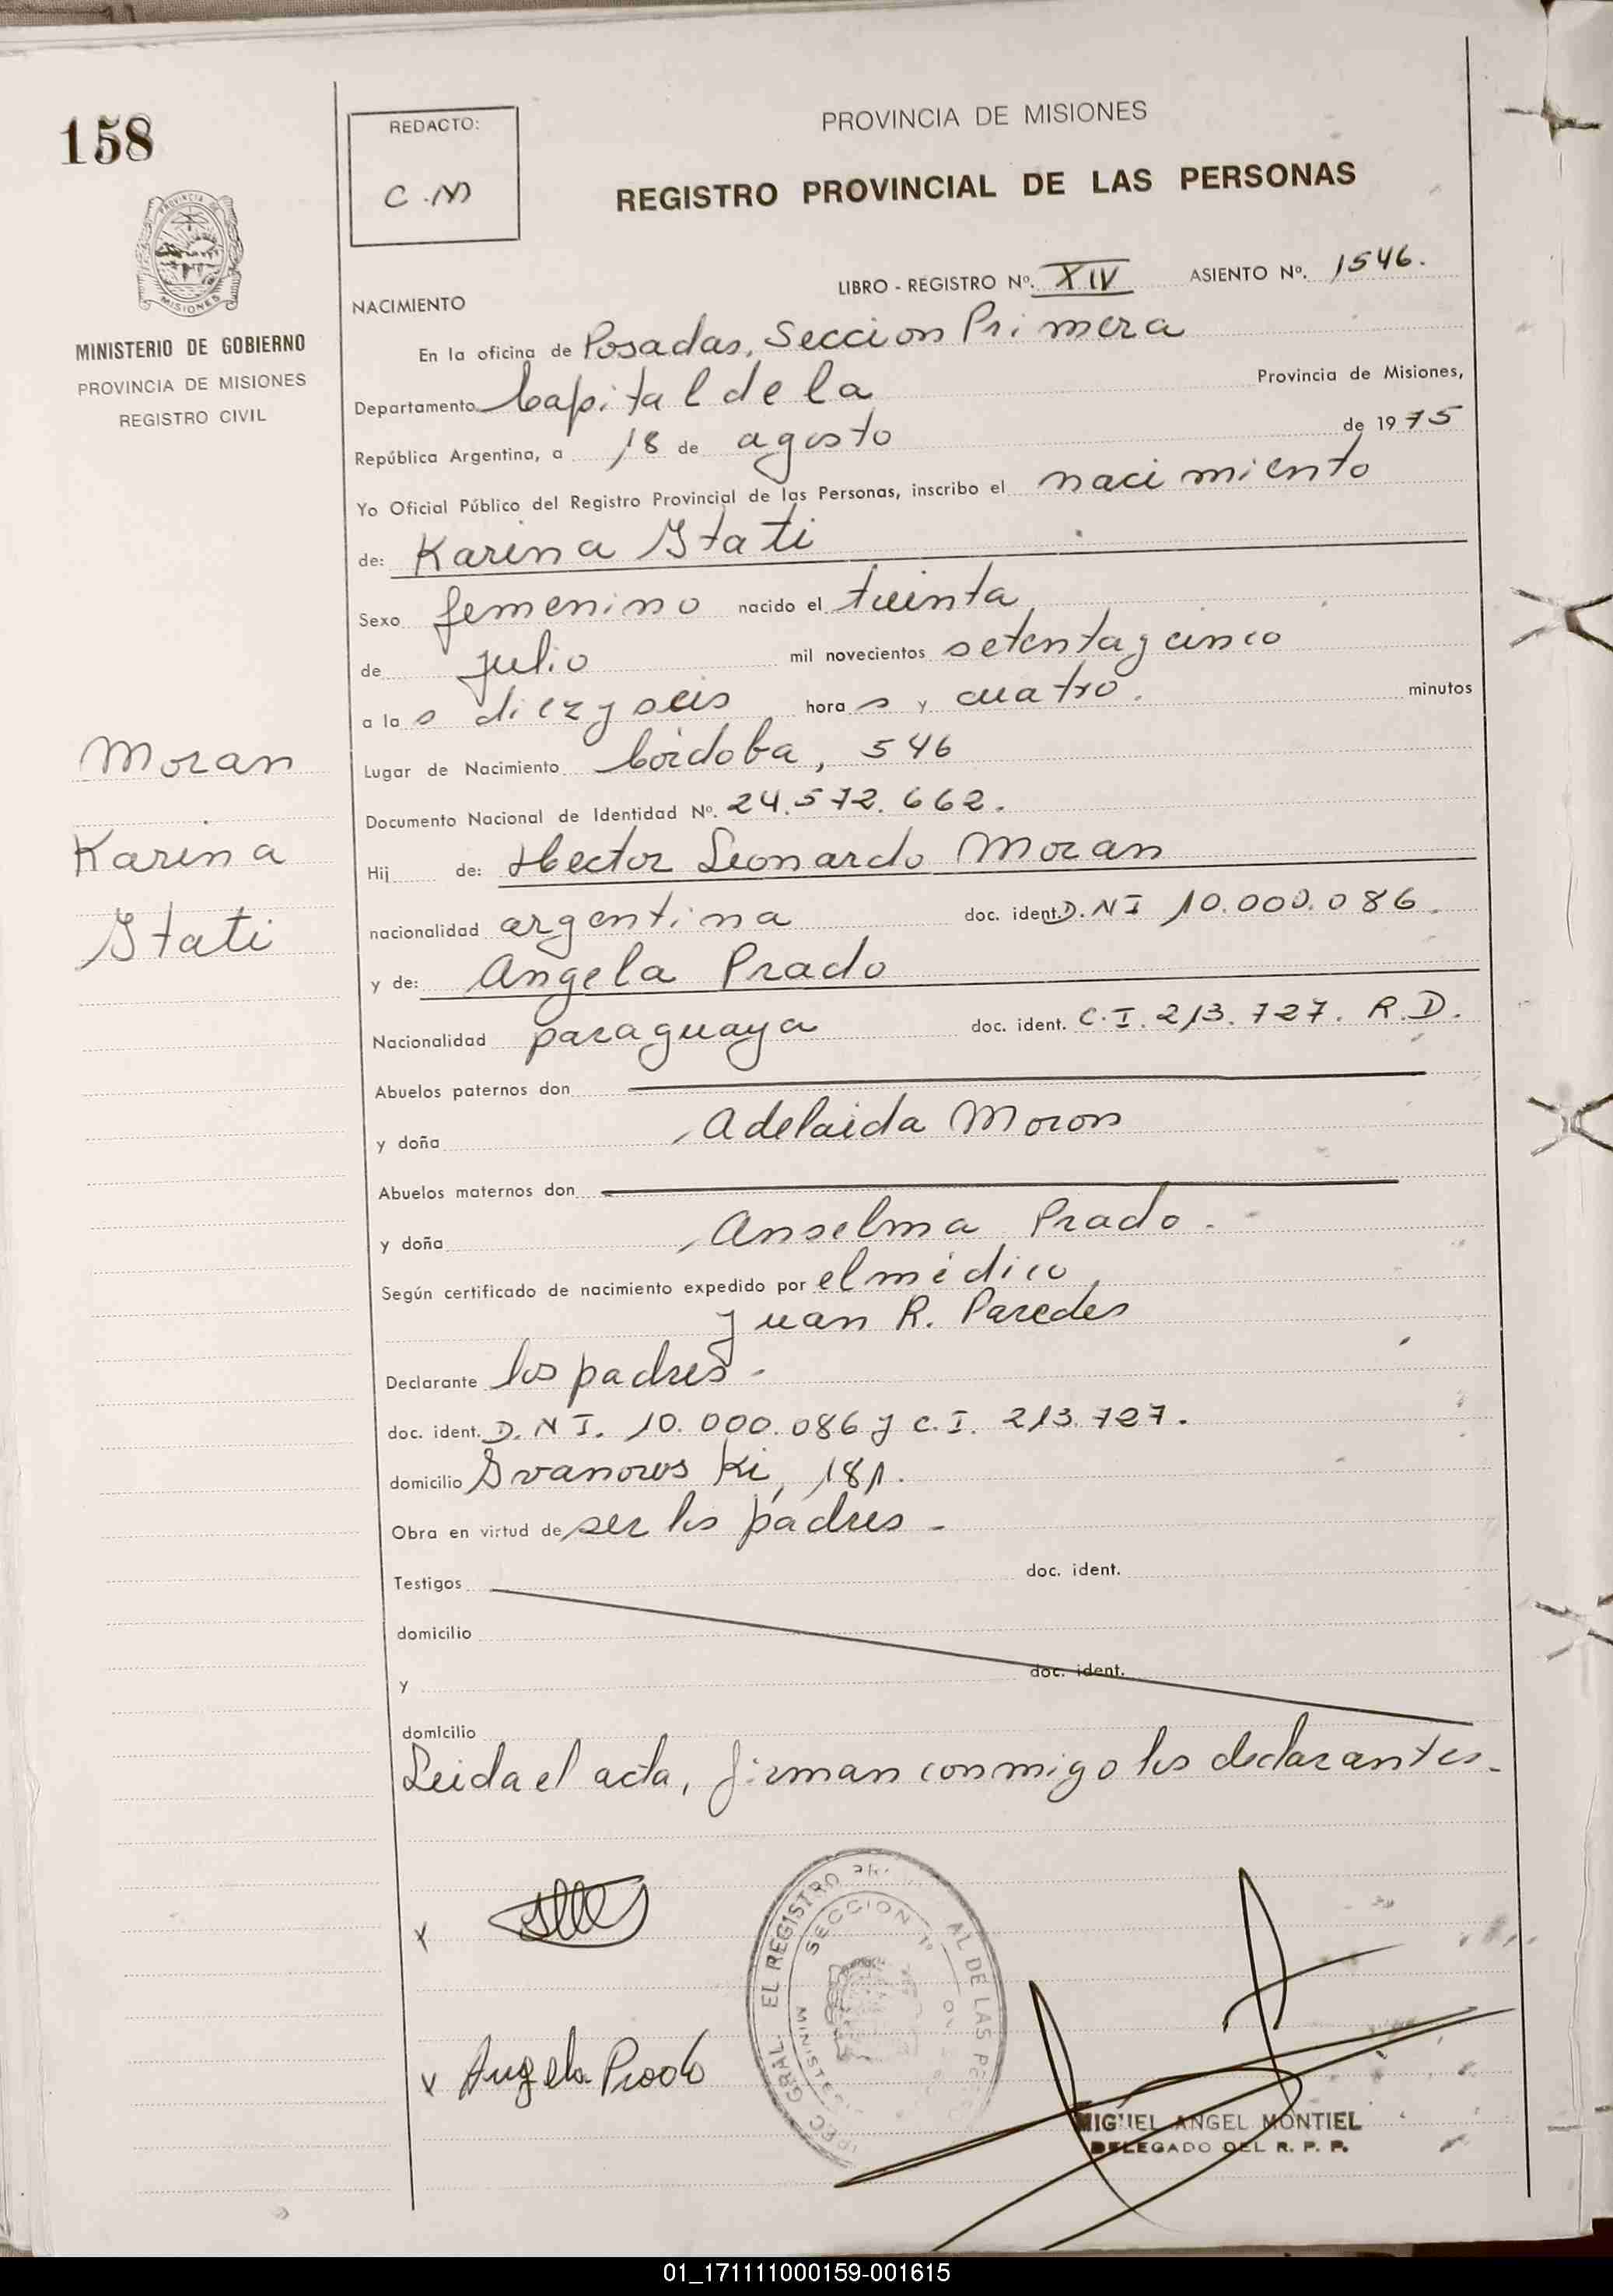 158
REDACTO:
C.M
PROVINCIA DE MISIONES
REGISTRO PROVINCIAL DE LAS PERSONAS
PROVINCIA DE
MISIONES
MINISTERIO DE GOBIERNO
PROVINCIA DE MISIONES
REGISTRO CIVIL
LIBRO - REGISTRO Nº. XIV ASIENTO Nº. 1546.
NACIMIENTO
En la oficina de Posadas, Seccion Primera
Departamento Capital de la Provincia de Misiones,
República Argentina, a 18 de agosto de 1975
Yo Oficial Público del Registro Provincial de las Personas, inscribo el nacimiento
de: Karina Itati
Sexo femenino nacido el treinta
de julio mil novecientos setenta y cinco
a la s diez y seis hora s y cuatro. minutos
Lugar de Nacimiento Córdoba, 546
Documento Nacional de Identidad Nº. 24.572.662.
Hij de: Hector Leonardo Moran
nacionalidad argentina doc. ident. D.NI 10.000.086.
y de: Angela Prado
Nacionalidad paraguaya doc. ident. C.I. 213.727. R.D.
Abuelos paternos don
y doña Adelaida Moron
Abuelos maternos don
y doña Anselma Prado.
Según certificado de nacimiento expedido por el médico,
Juan R. Paredes
Declarante los padres -
doc. ident. D.NI. 10.000.086 y C.I. 213.727.
domicilio Ivanowski, 181.
Obra en virtud de ser los padres -
Testigos doc. ident.
domicilio
y doc. ident.
domicilio
Leida el acta, firman conmigo los declarantes.-
Moran
Karina
Itati
x
x Angela Prado
GRAL. EL REGISTRO AL DE LAS
SECCION 1º
MIGUEL ANGEL MONTIEL
DELEGADO DEL R. P. P.
01_171111000159-001615